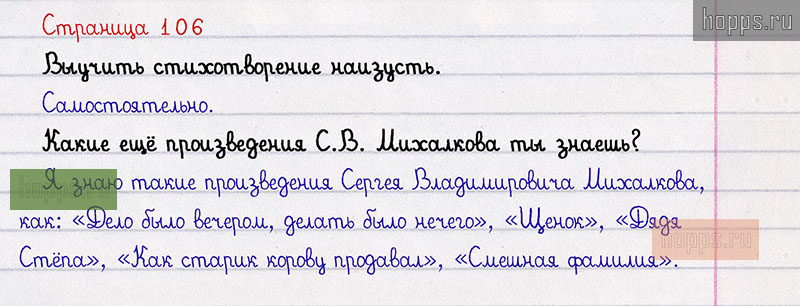 hopps.ru
Страница 106
Выучить стихотворение наизусть.
Самостоятельно.
Какие ещё произведения С.В. Михалкова ты знаешь?
Я знаю такие произведения Сергея Владимировича Михалкова,
hopps.ru
как: «Дело было вечером, делать было нечего», «Щенок», «Дядя
hopps.ru
Стёпа», «Как старик корову продавал», «Смешная фамилия».